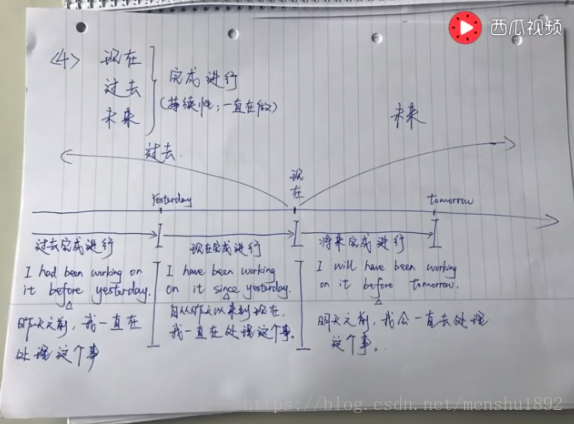 西瓜视频
<4> 现在
过去
未来
完成进行
(持续性,一直在做)
过去
现在
未来
Yesterday
tomorrow
过去完成进行
现在完成进行
将来完成进行
I had been working on
it before yesterday.
昨天之前,我一直在
处理这个事
I have been working
on it since yesterday.
自从昨天以来到现在,
我一直在处理这个事.
I will have been working
on it before Tomorrow.
明天之前,我会一直去处理
这个事.
https://blog.csdn.net/menshu1892